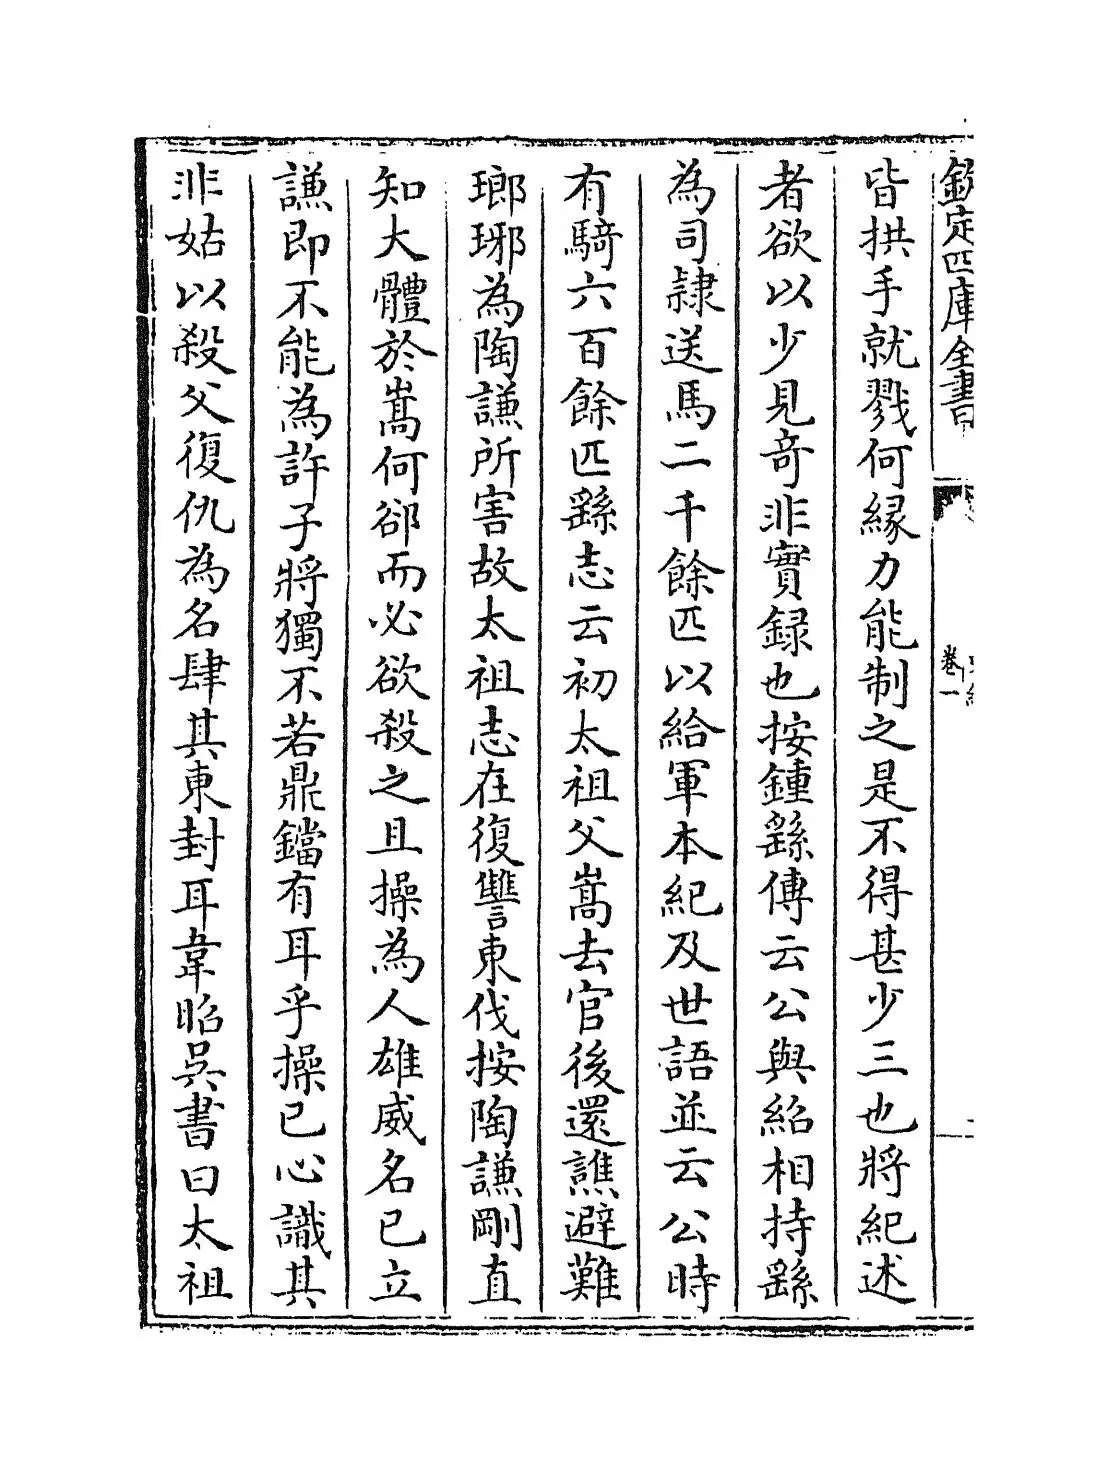 欽定四庫全書
卷一
皆拱手就戮何緣力能制之是不得甚少三也將紀述
者欲以少見奇非實録也按鍾繇傳云公與紹相持繇
為司隷送馬二千餘匹以給軍本紀及世語並云公時
有騎六百餘匹繇志云初太祖父嵩去官後還譙避難
瑯琊為陶謙所害故太祖志在復讐東伐按陶謙剛直
知大體於嵩何郤而必欲殺之且操為人雄威名已立
謙即不能為許子將獨不若鼎鐺有耳乎操已心識其
非姑以殺父復仇為名肆其東封耳韋昭吳書曰太祖